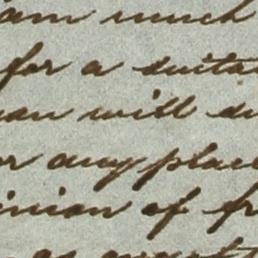 am much
for a suita
an will
or any place
inion of fr